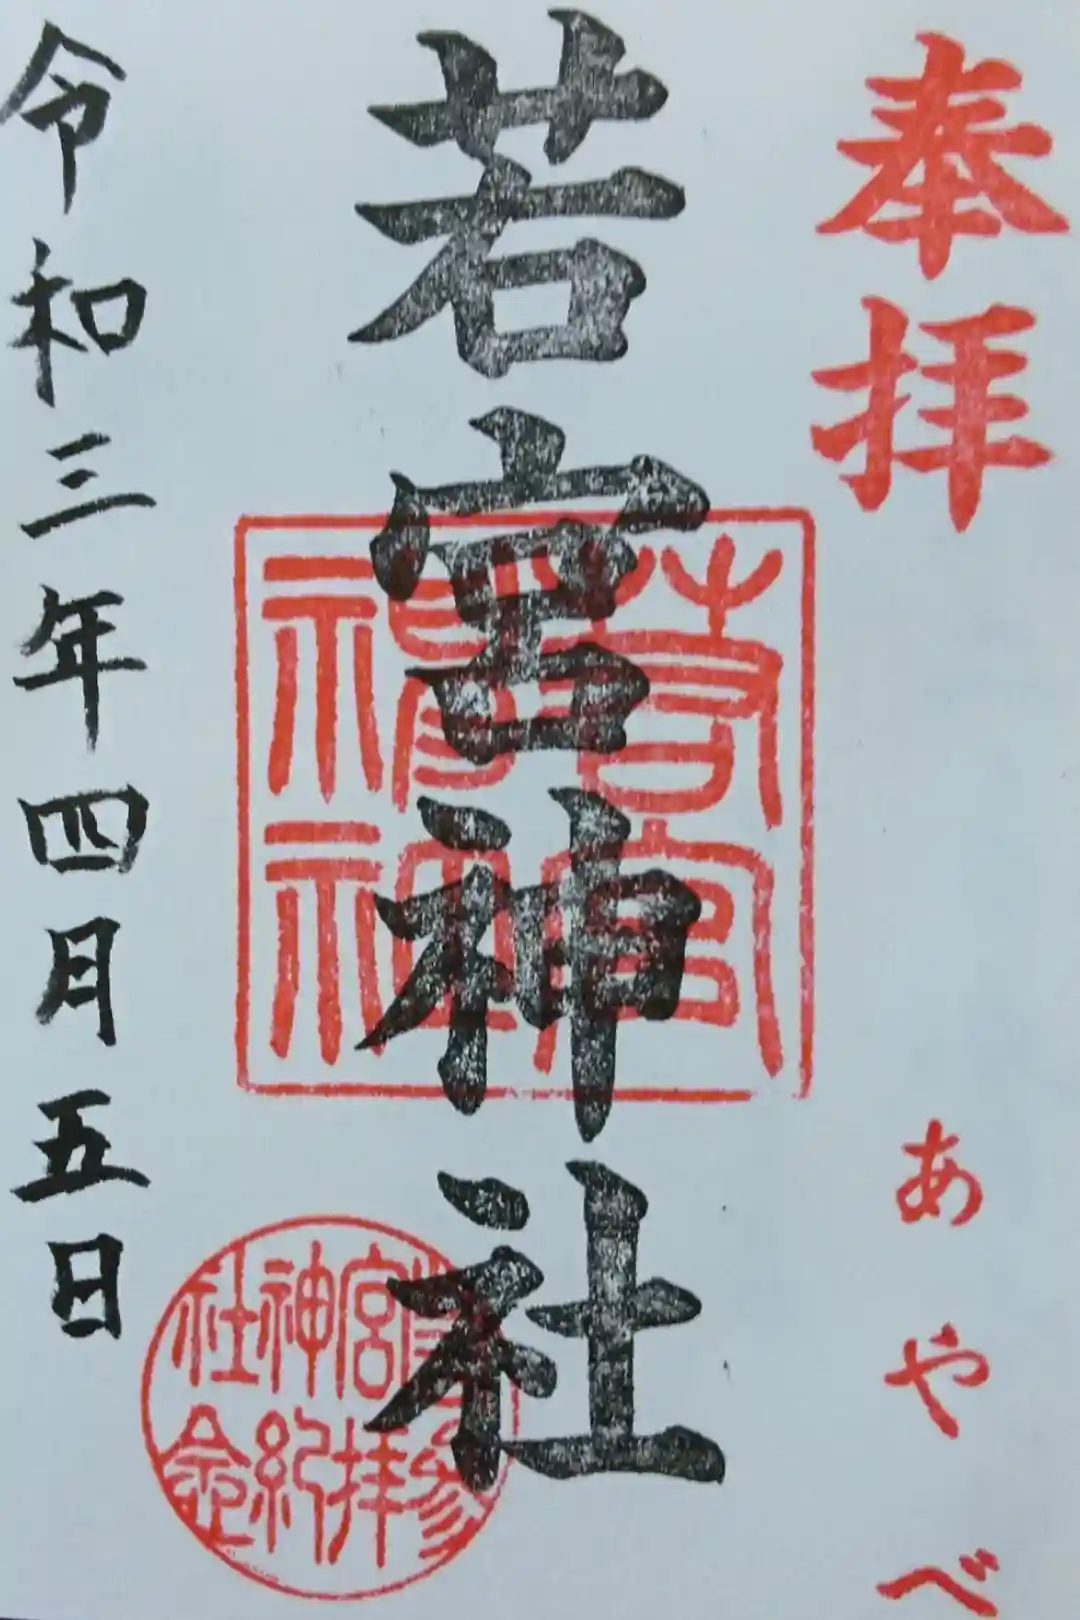 奉拝
あやべ
若宮神社
若宮神社
若宮神社
参拝紀念
令和三年四月五日